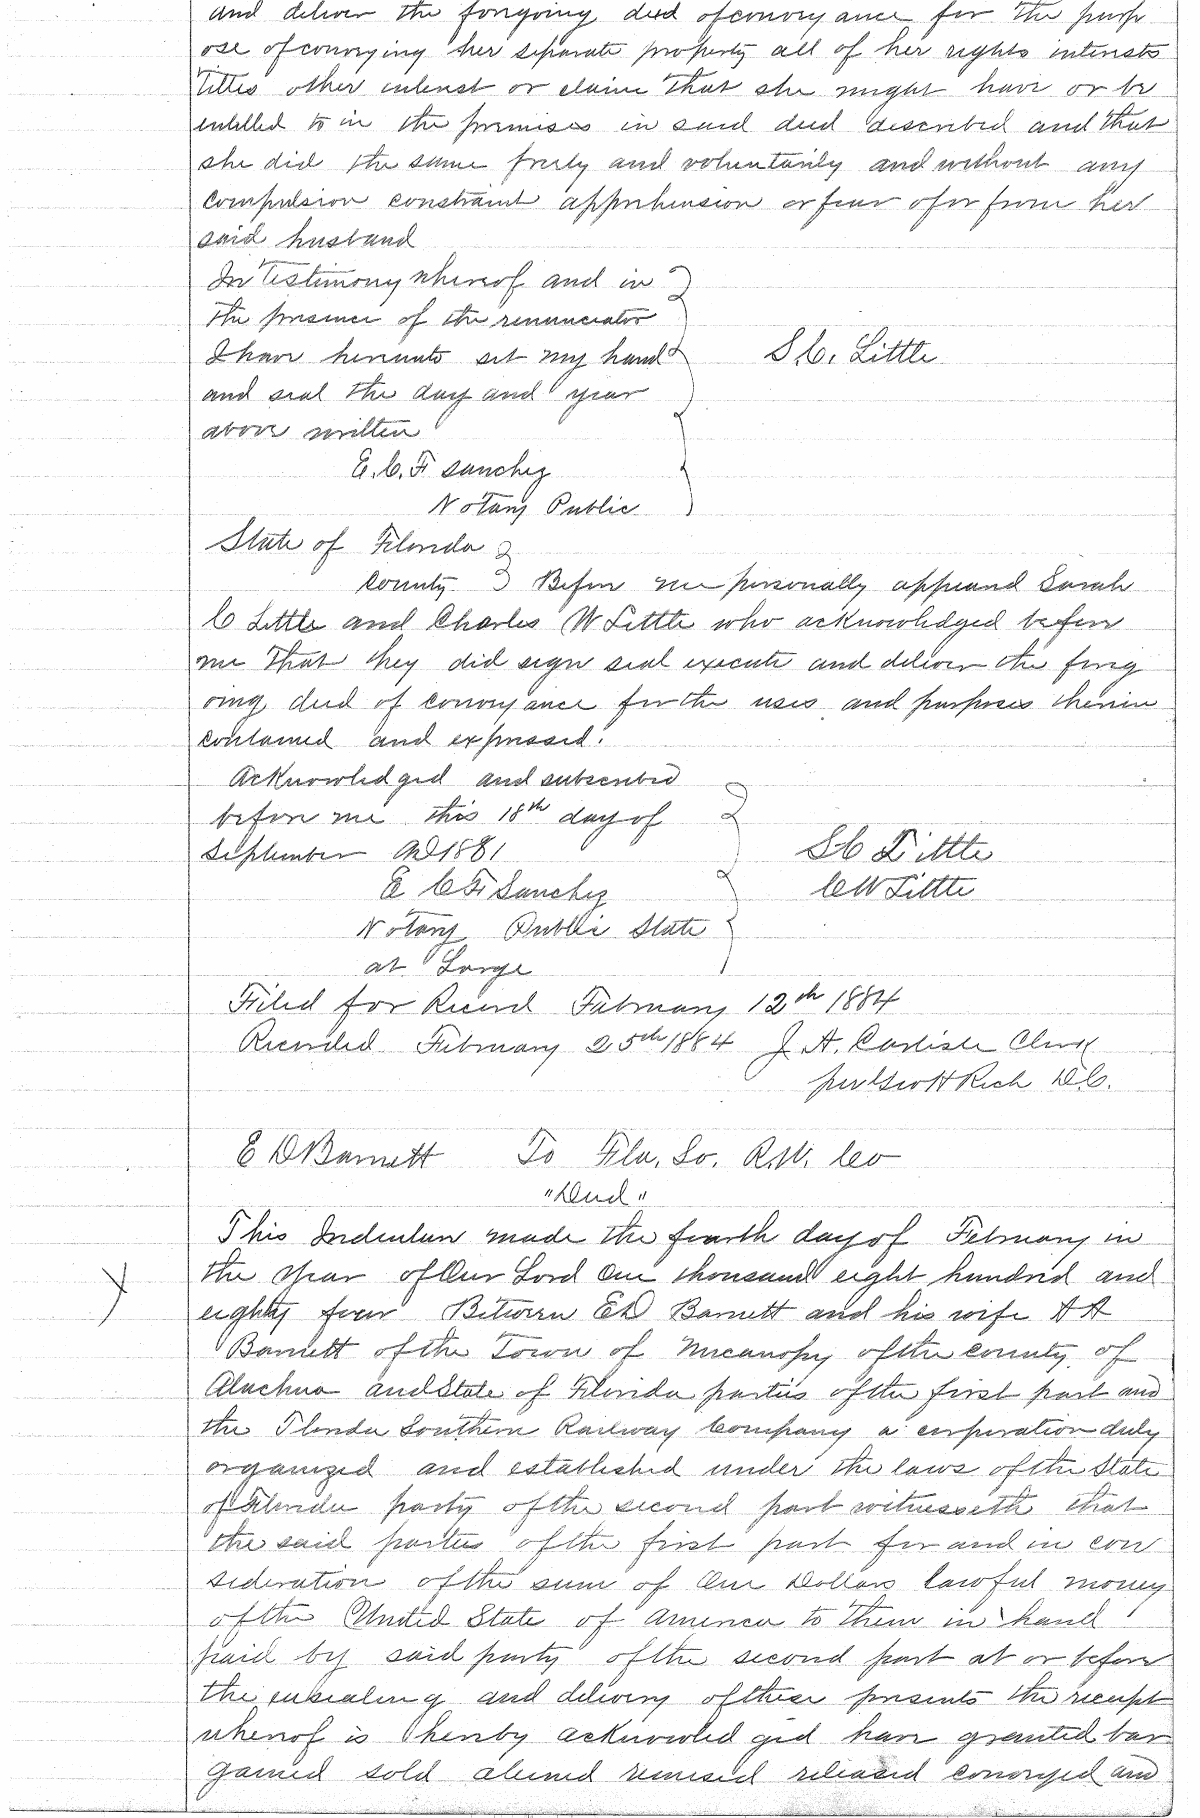 and deliver the forgoing deed of conveyance for the purp
ose of conveying her separate property all of her rights interests
titles other interest or claim that she might have or be
entitled to in the premises in said deed described and that
she did the same freely and voluntarily and without any
compulsion constraint apprehension or fear of or from her
said husband
In Testimony whereof and in
the presence of the renunciator
I have hereunto set my hand
and seal the day and year
above written
S. C. Little
E. C. F Sanchez
Notary Public
State of Florida
County Before me personally appeared Sarah
C Little and Charles W Little who acknowledged before
me that they did sign seal execute and deliver the forg
oing deed of conveyance for the uses and purposes therein
contained and expressed.
Acknowledged and subscribed
before me this 18th day of
September AD 1881
S C Little
C W Little
E C F Sanchez
Notary Public State
at Large
Filed for Record February 12th 1884
Recorded February 25th 1884 J. A. Carlisle Clerk
per Geo H Rich D.C.
E D Barnett To Fla. So. R.W. Co
"Deed"
This Indenture made the fourth day of February in
the year of Our Lord One thousand eight hundred and
eighty four Between E D Barnett and his wife A A
Barnett of the Town of Micanopy of the county of
Alachua and State of Florida parties of the first part and
the Florida Southern Railway Company a corporation duly
organized and established under the laws of the State
of Florida party of the second part witnesseth that
the said parties of the first part for and in con
sideration of the sum of One Dollars lawful money
of the United State of America to them in hand
paid by said party of the second part at or before
the ensealing and delivery of these presents the receipt
whereof is hereby acknowledged have granted bar
gained sold aliened remised released conveyed and